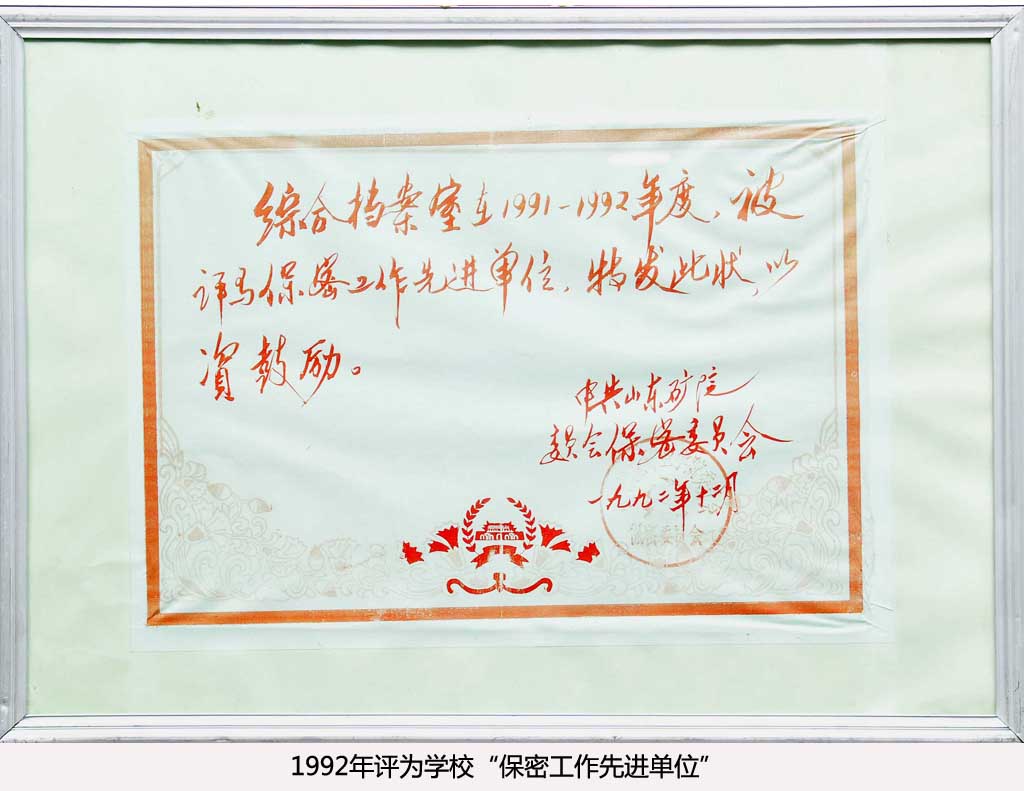 综合档案室在1991-1992年度，被
评为保密工作先进单位，特发此状，以
资鼓励。
中共山东矿院
委员会保密委员会
一九九二年十二月
保密委员会
1992年评为学校“保密工作先进单位”